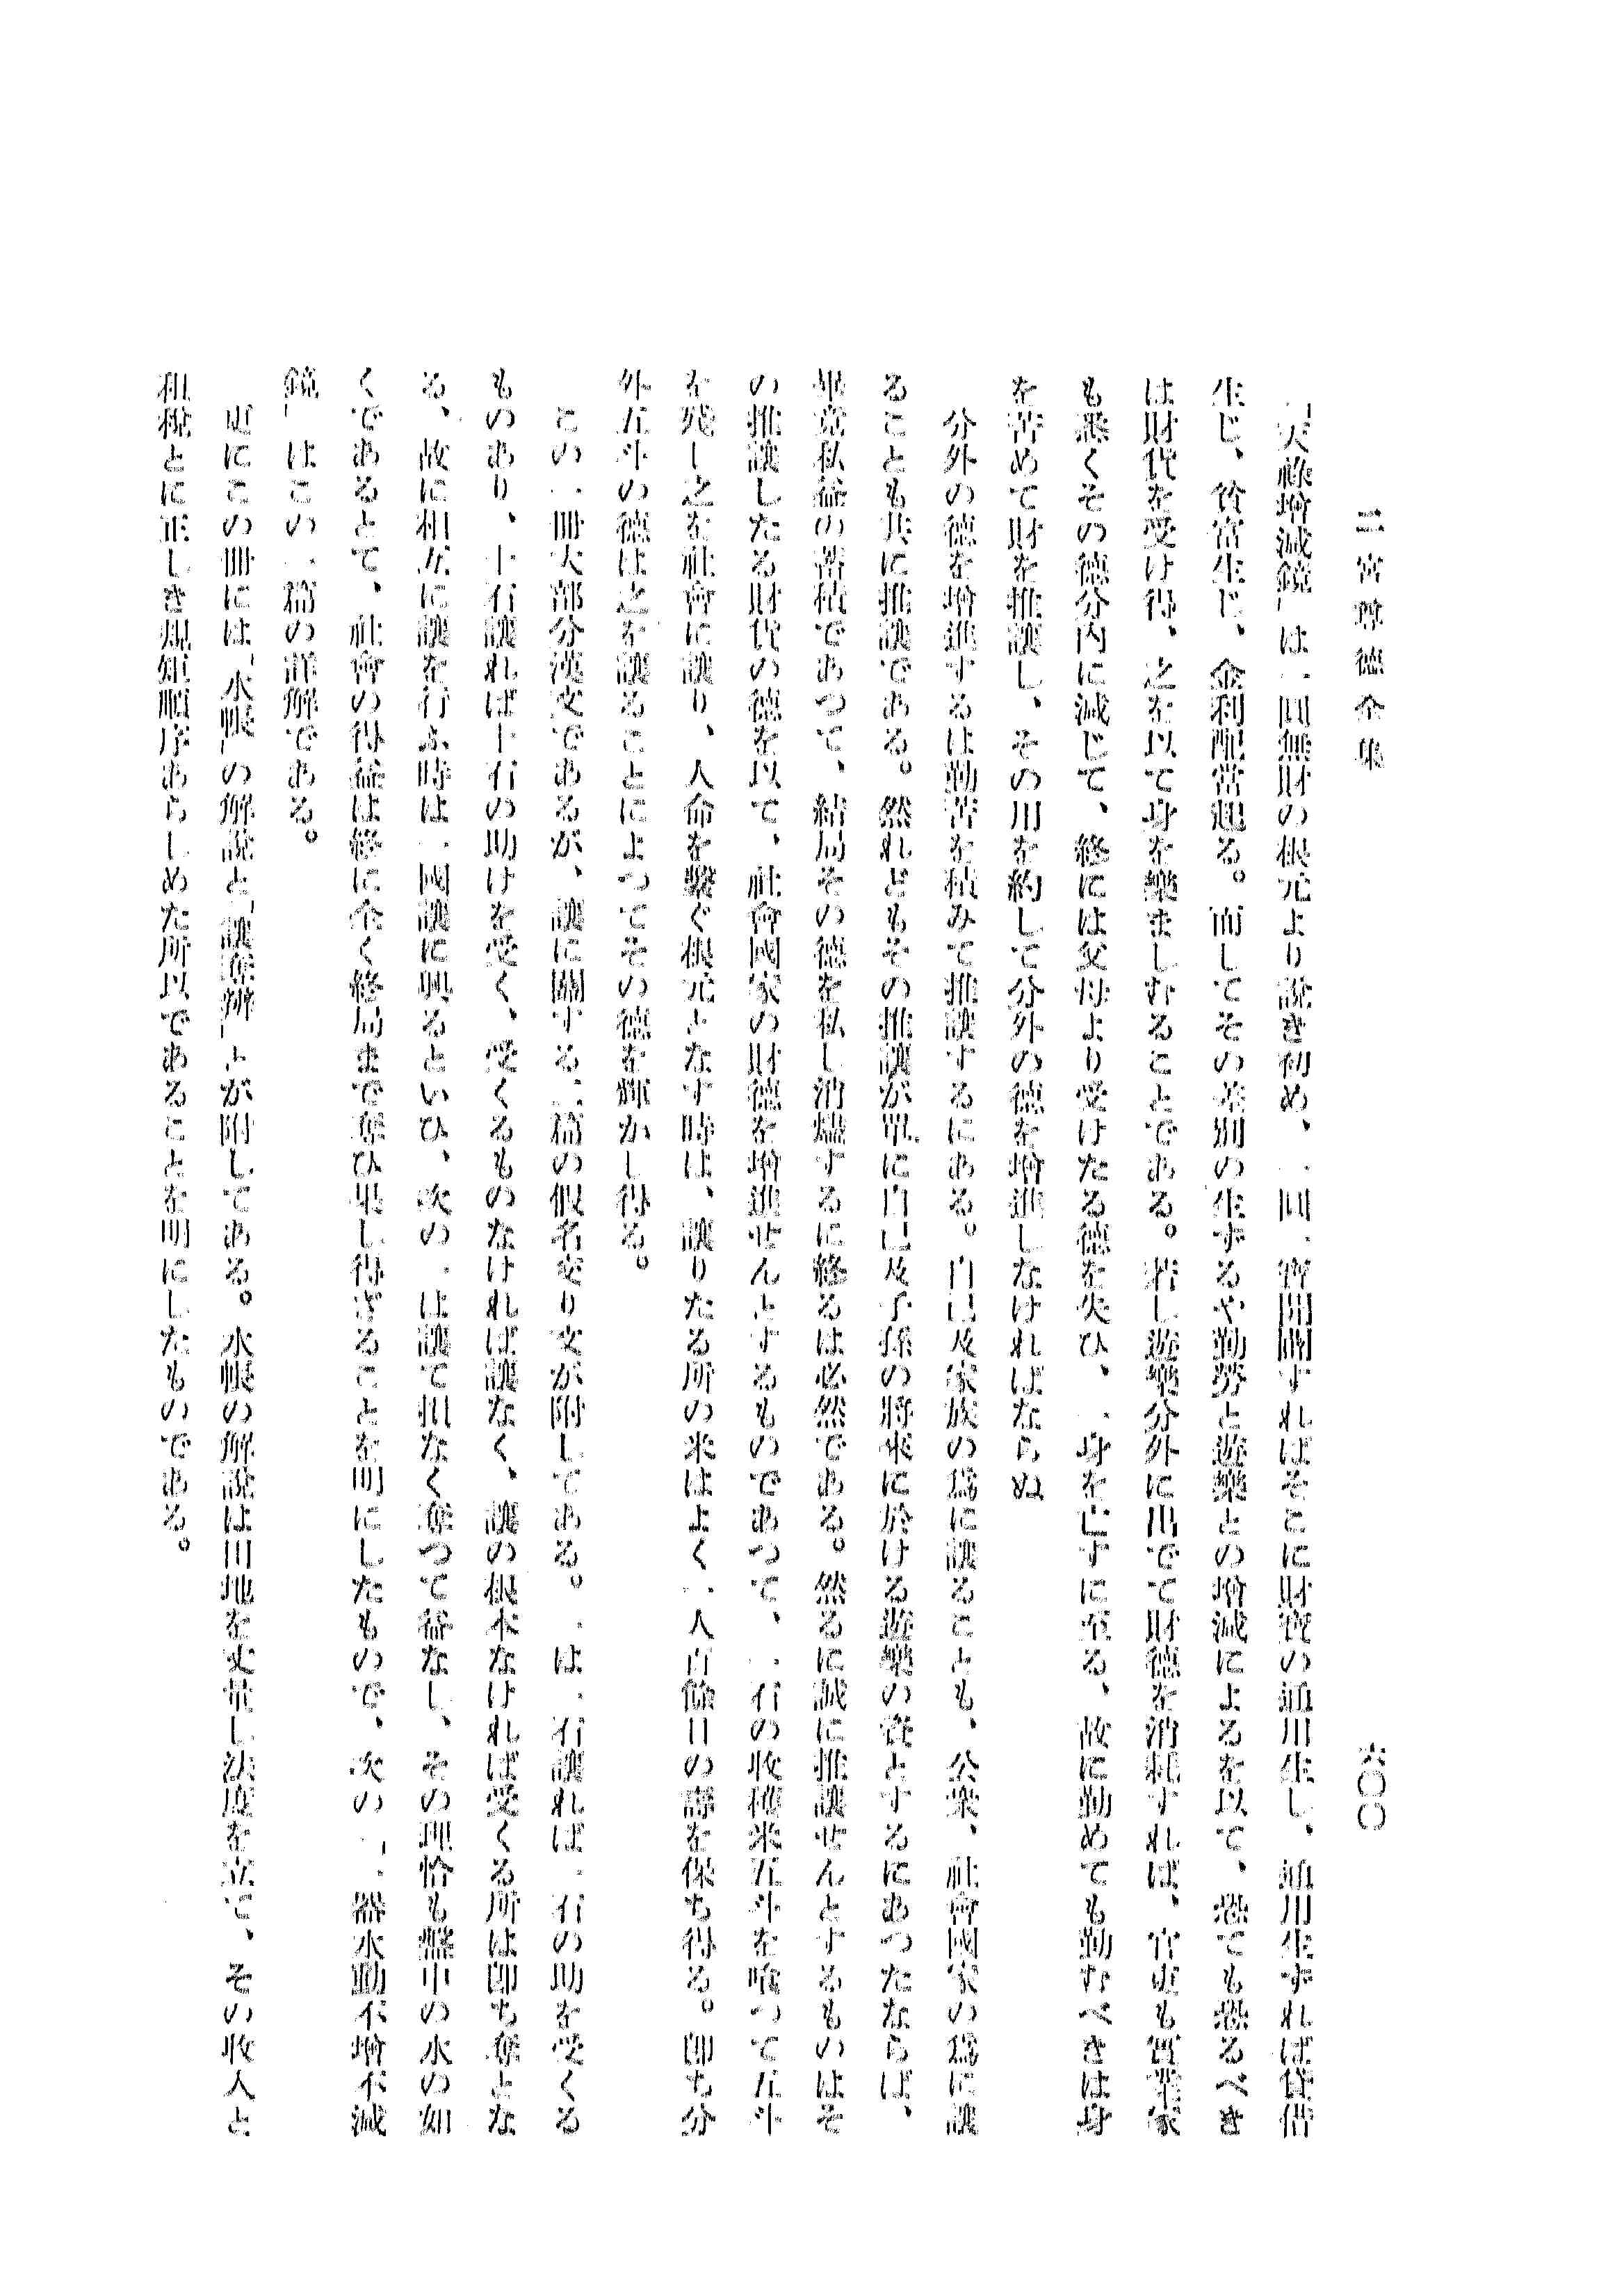 二宮尊德全集
六〇〇
「天祿增減鏡」は一圓無財の根元より說き初め、一圓一寶開闢すればそこに財寶の通用生じ、通用生ずれば貸借
生じ、貧富生じ、金利配當起る。而してその差別の生ずるや勤勞と遊樂との增減によるを以て、恐ても恐るべき
は財貨を受け得、之を以て身を樂ましむることである。若し遊樂分外に出でて財德を消耗すれば、官吏も實業家
も悉くその德分內に減じて、終には父母より受けたる德を失ひ、一身を亡すに至る、故に勤めても勤むべきは身
を苦めて財を推讓し、その用を約して分外の德を增進しなければならぬ
分外の德を增進するは勤苦を積みて推讓するにある。自己及家族の爲に讓ることも、公衆、社會國家の爲に讓
ることも共に推讓である。然れどもその推讓が單に自己及子孫の將來に於ける遊樂の資とするにあつたならば、
畢竟私益の蓄積であつて、結局その德を私し消燼するに終るは必然である。然るに誠に推讓せんとするものはそ
の推讓したる財貨の德を以て、社會國家の財德を增進せんとするものであつて、一石の收穫米五斗を喰つて五斗
を残し之を社會に讓り、人命を繋ぐ根元となす時は、讓りたる所の米はよく一人百餘日の壽を保ち得る。卽ち分
外五斗の德は之を讓ることによつてその德を輝かし得る。
この一冊大部分漢文であるが、讓に關する二篇の假名交り文が附してある。一は一石讓れば一石の助を受くる
ものあり、十石讓れば十石の助けを受く、受くるものなければ讓なく、讓の根本なければ受くる所は卽ち奪とな
る、故に相互に讓を行ふ時は一國讓に興るといひ、次の一は讓て損なく奪つて益なし、その理恰も盤中の水の如
くであるとて、社會の得益は終に全く終局まで奪ひ果し得ざることを明にしたもので、次の「一器水動不增不減
鏡」はこの一篇の詳解である。
更にこの冊には「水帳」の解說と「讓奪辨」とが附してある。水帳の解說は田地を丈量し法度を立て、その收入と
租稅とに正しき規矩順序あらしめた所以であることを明にしたものである。